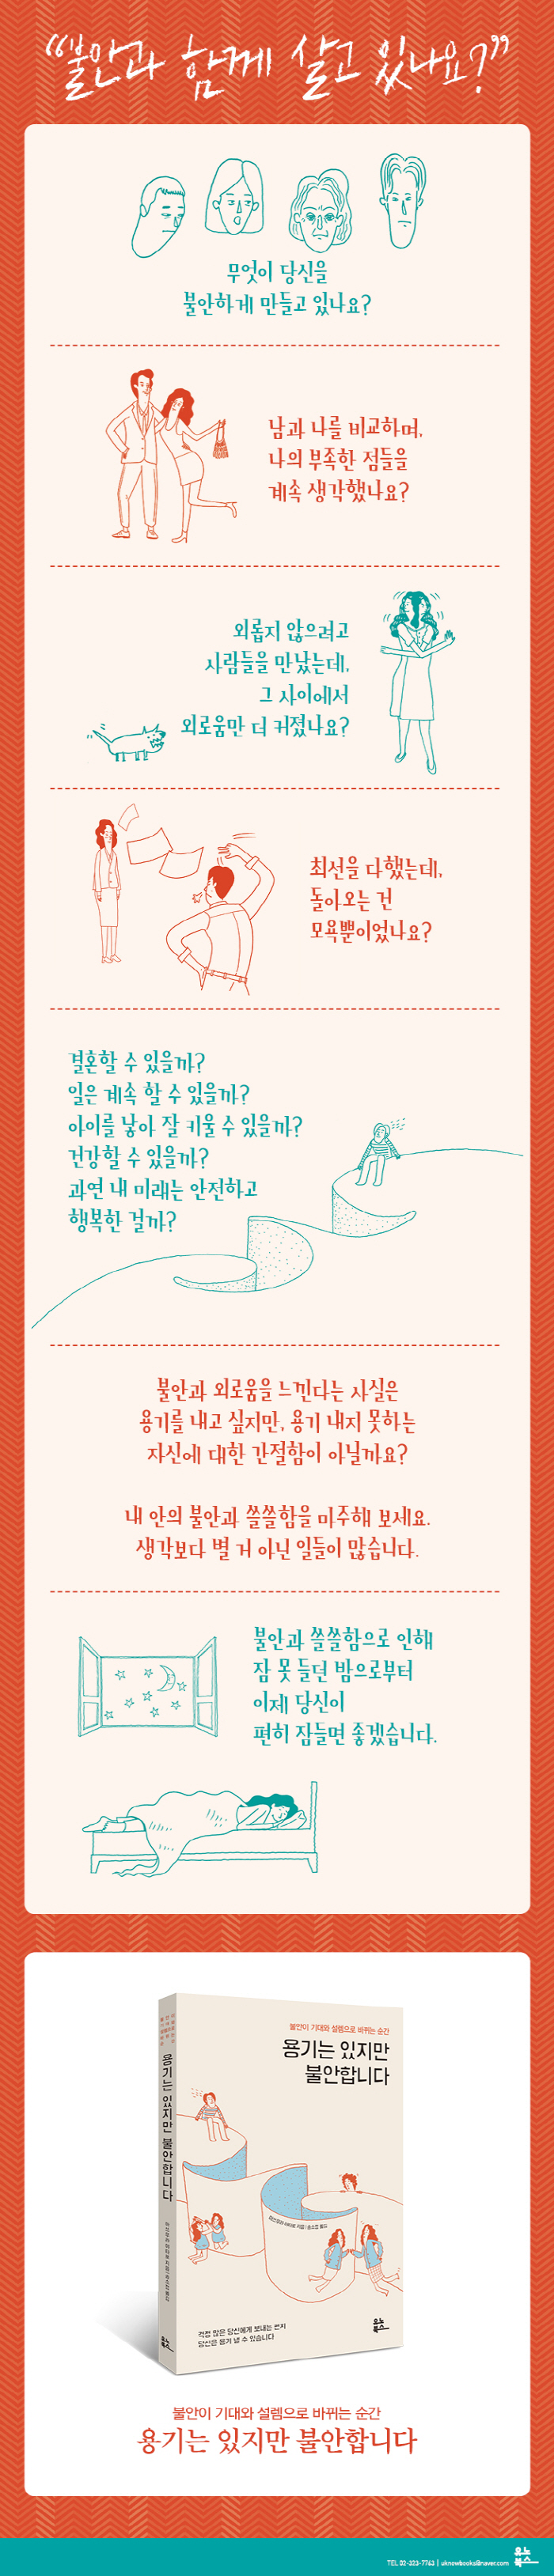 “불안과 함께 살고 있나요?”
무엇이 당신을
불안하게 만들고 있나요?
남과 나를 비교하며,
나의 부족한 점들을
계속 생각했나요?
외롭지 않으려고
사람들을 만났는데,
그 사이에서
외로움만 더 커졌나요?
최선을 다했는데,
돌아오는 건
모욕뿐이었나요?
결혼할 수 있을까?
일은 계속 할 수 있을까?
아이를 낳아 잘 키울 수 있을까?
건강할 수 있을까?
과연 내 미래는 안전하고
행복한 걸까?
불안과 외로움을 느낀다는 사실은
용기를 내고 싶지만, 용기 내지 못하는
자신에 대한 간절함이 아닐까요?
내 안의 불안과 쓸쓸함을 마주해 보세요.
생각보다 별 거 아닌 일들이 많습니다.
불안과 쓸쓸함으로 인해
잠 못 들던 밤으로부터
이제 당신이
편히 잠들면 좋겠습니다.
불안이 기대와 설렘으로 바뀌는 순간
용기는 있지만
불안합니다
용기는 있지만 불안합니다
걱정 많은 당신에게 보내는 편지
당신은 용기 낼 수 있습니다
유노
북스
유노
북스
불안이 기대와 설렘으로 바뀌는 순간
용기는 있지만 불안합니다
TEL 02-323-7763 | uknowbooks@naver.com
유노
북스